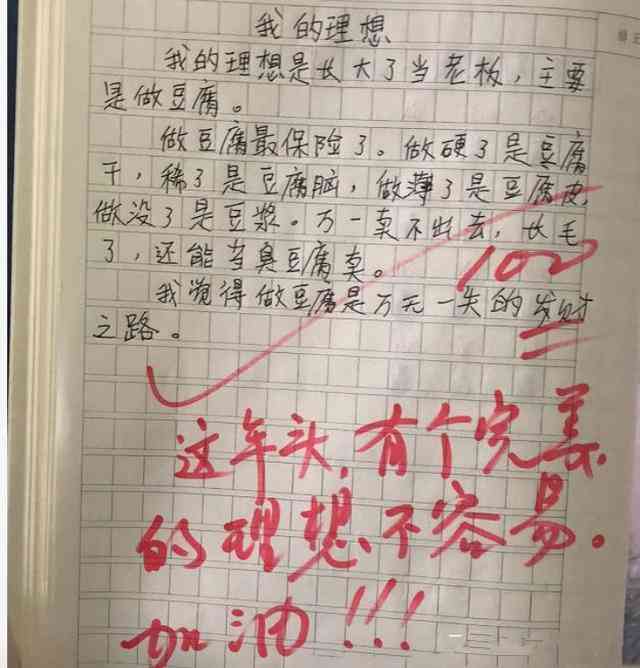 我的理想
我的理想是长大了当老板，主要
是做豆腐。
做豆腐最保险了。做硬了是豆腐
干，稀了是豆腐脑，做薄了是豆腐皮，
做没了是豆浆。万一卖不出去，长毛
了，还能当臭豆腐卖。
100
我觉得做豆腐是万无一失的发财
之路。
这年头，有个完美
的理想不容易。
加油!!!